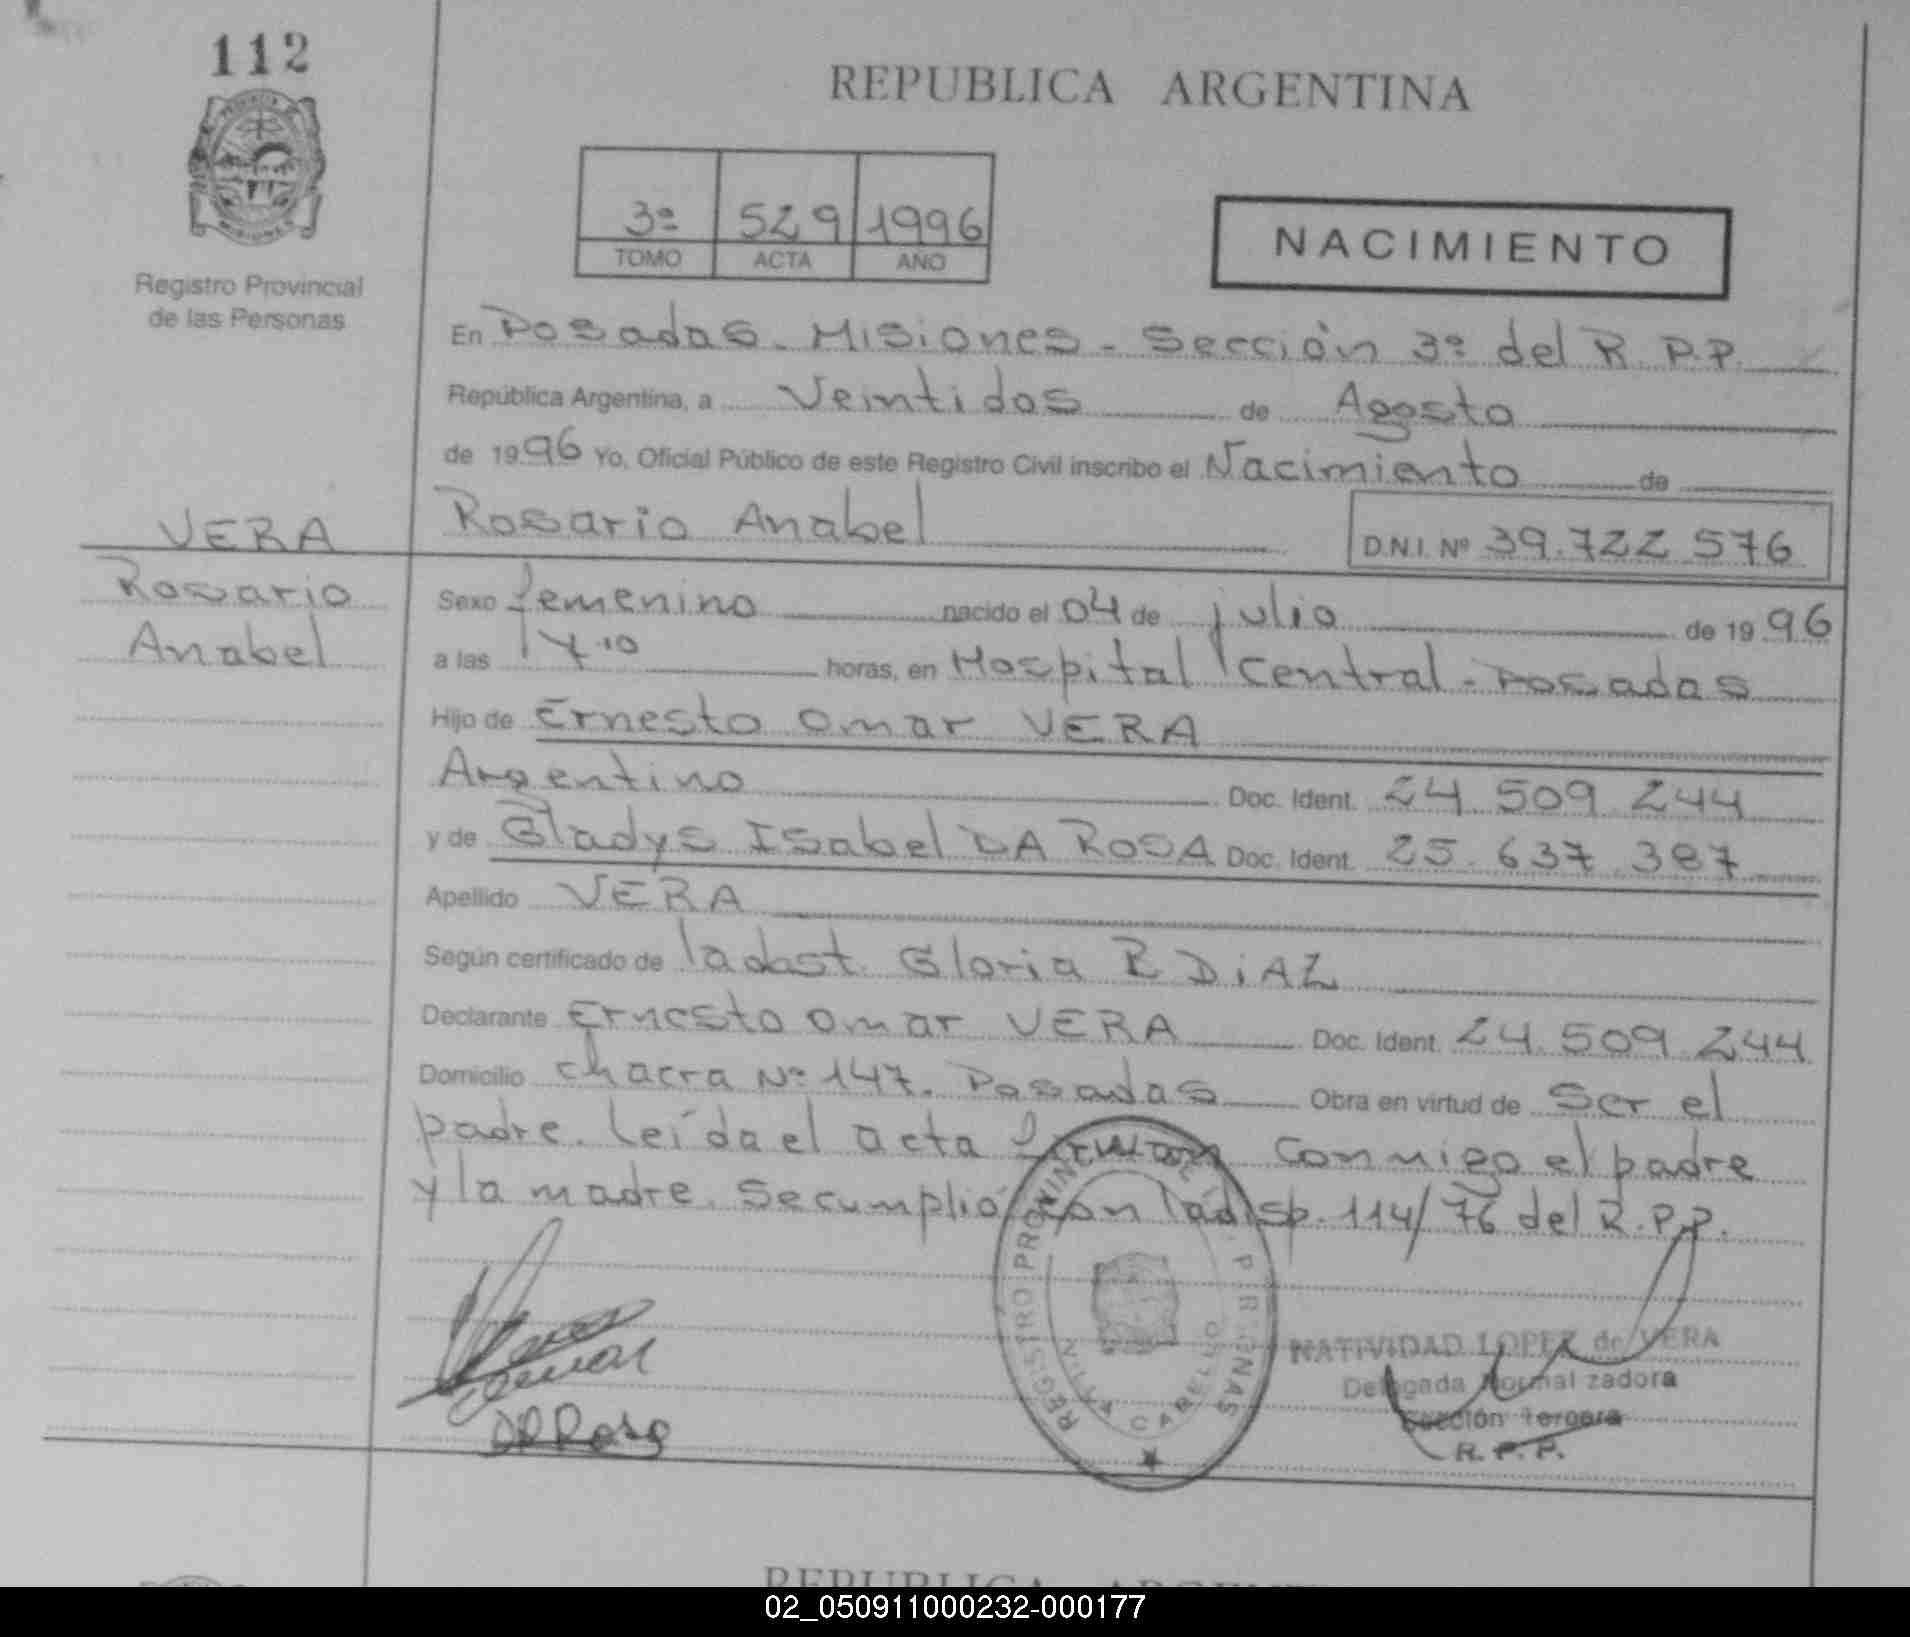 112
PROVINCIA DE
MISIONES
Registro Provincial
de las Personas
REPUBLICA ARGENTINA
3ª 529 1996
TOMO ACTA AÑO
NACIMIENTO
En Posadas - Misiones - Sección 3ª del R.P.P.
República Argentina, a Veintidos de Agosto
de 1996 Yo, Oficial Público de este Registro Civil inscribo el Nacimiento de
Rosario Anabel D.N.I. Nº 39.722.576
VERA
Rosario
Anabel
Sexo femenino nacido el 04 de julio de 1996
a las 17.10 horas, en Hospital Central - Posadas
Hijo de Ernesto Omar VERA
Argentino Doc. Ident. 24.509.244
y de Gladys Isabel DA ROSA Doc. Ident. 25.637.387
Apellido VERA
Según certificado de la obst. Gloria R DiAZ
Declarante Ernesto Omar VERA Doc. Ident. 24.509.244
Domicilio chacra Nº 147. Posadas Obra en virtud de Ser el
padre. leída el acta firman conmigo el padre
y la madre. Se cumplió con la disp. 114/76 del R.P.P.
DA Rosa
REGISTRO PROVINCIAL DE PERSONAS
VILLA CABELLO
NATIVIDAD LOPEZ de VERA
Delegada Normalizadora
Sección Tercera
R. P. P.
REPUBLICA ARGENTINA
02_050911000232-000177